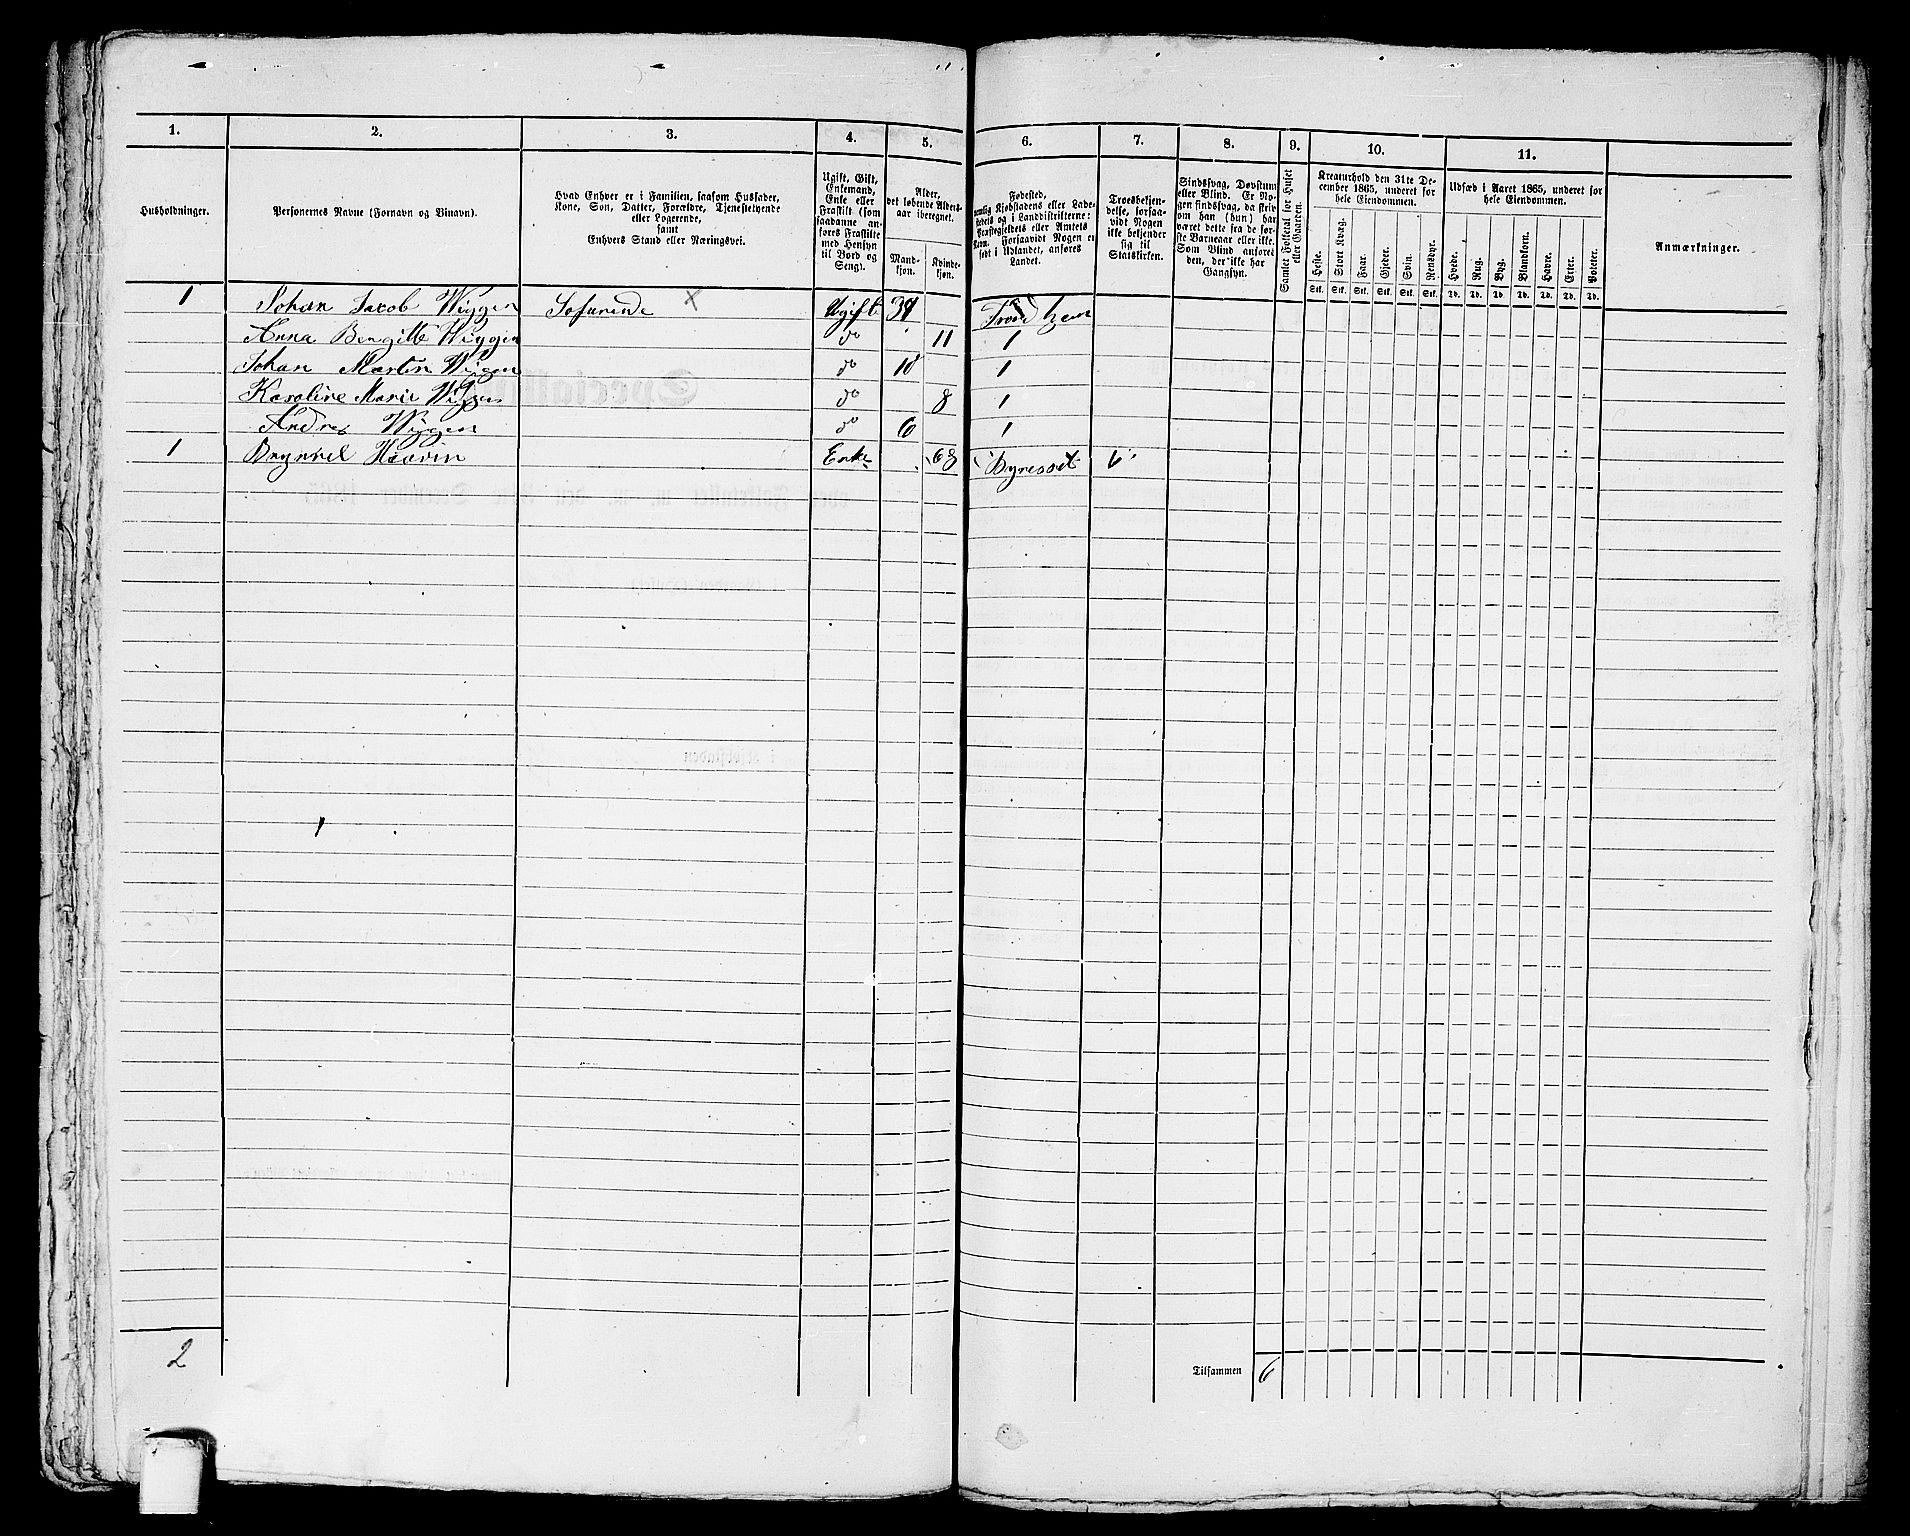 1. 2. 3. 4. 5. 6. 7. 8. 9. 10. 11.
Husholdninger.
Personernes Navne (Fornavn og Binavn).
Hvad Enhver er i Familien, saasom Husfader,
Kone, Søn, Datter, Forældre, Tjenestetyende
eller Logerende,
samt
Enhvers Stand eller Næringsvei.
Ugift, Gift,
Enkemand,
Enke eller
Fraskilt (som
saadanne an-
føres Fraskilte
med Hensyn
til Bord og
Seng).
Alder,
det løbende Alders-
aar iberegnet.
Mand-
kjøn.
Kvinde-
kjøn.
Fødested,
nemlig Kjøbstadens eller Lade-
stedets og i Landdistrikterne:
Præstegjeldets eller Amtets
Navn. Forsaavidt Nogen er
født i Udlandet, anføres
Landet.
Troesbekjen-
delse, forsaa-
vidt Nogen
ikke bekjender
sig til
Statskirken.
Sindssvag, Døvstum
eller Blind. Er No-
gen sindssvag, da skriv
om han (hun) har
været dette fra de før-
ste Barneaar eller ikke.
Som Blind anføres
den, der ikke har
Gangsyn.
Samlet Folketal for Huset
eller Gaarden.
Kreaturhold den 31te De-
cember 1865, underet for
hele Eiendommen.
Heste. Stort Kvæg. Faar. Gjeder. Svin. Rensdyr.
Stk. Stk. Stk. Stk. Stk. Stk.
Udsæd i Aaret 1865, underet for
hele Eiendommen.
Hvede. Rug. Byg. Blandkorn. Havre. Erter. Poteter.
Td. Td. Td. Td. Td. Td. Td.
Anmærkninger.
1 Johan Jacob Wiggen Sofarende X Ugift 39 Trondhem
Anna Bergitte Wiggen do 11 1
Johan Martin Wigen do 10 1
Karoline Marie Wigen do 8 1
Andres Wiggen do 6 1
1 Enke 68
2
Tilsammen 6